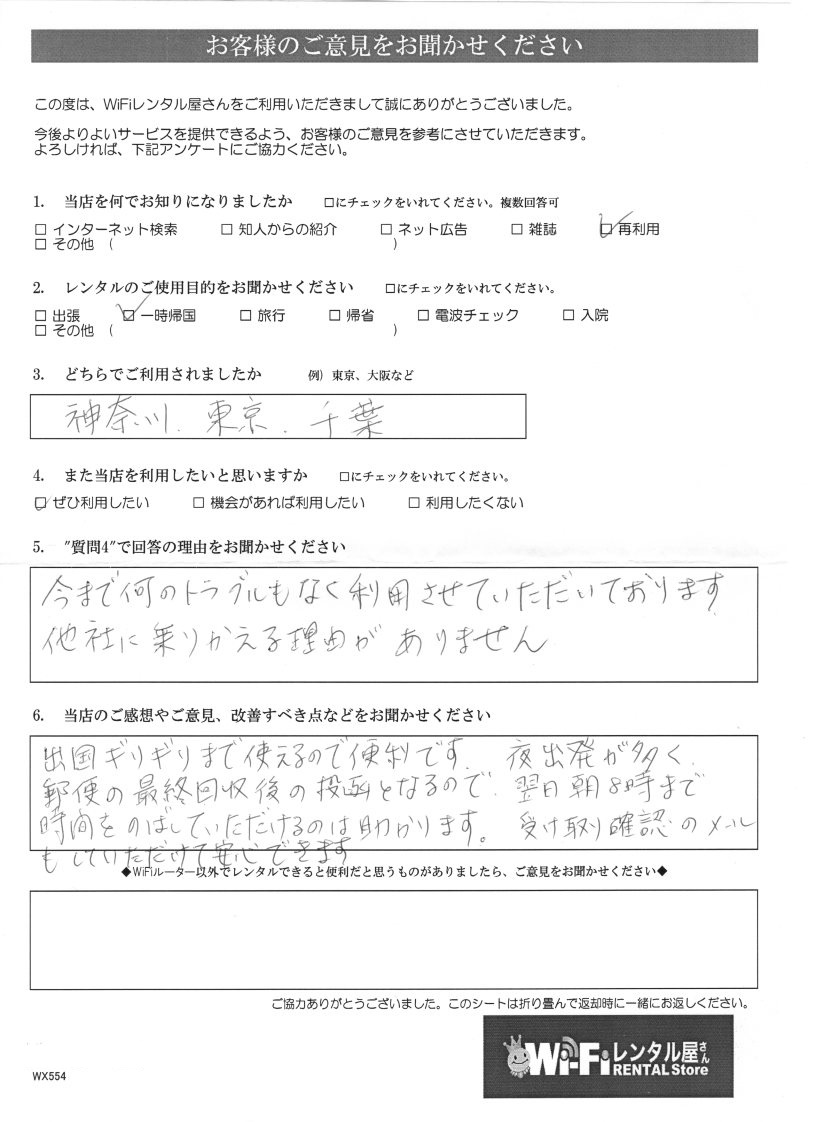 お客様のご意見をお聞かせください
この度は、WiFiレンタル屋さんをご利用いただきまして誠にありがとうございました。
今後よりよいサービスを提供できるよう、お客様のご意見を参考にさせていただきます。
よろしければ、下記アンケートにご協力ください。
1. 当店を何でお知りになりましたか □にチェックをいれてください。複数回答可
□ インターネット検索 □ 知人からの紹介 □ ネット広告 □ 雑誌 ☑ 再利用
□ その他 ( )
2. レンタルのご使用目的をお聞かせください □にチェックをいれてください。
□ 出張 ☑ 一時帰国 □ 旅行 □ 帰省 □ 電波チェック □ 入院
□ その他 ( )
3. どちらでご利用されましたか 例) 東京、大阪など
神奈川. 東京. 千葉
4. また当店を利用したいと思いますか □にチェックをいれてください。
☑ ぜひ利用したい □ 機会があれば利用したい □ 利用したくない
5. "質問4"で回答の理由をお聞かせください
今まで何のトラブルもなく利用させていただいております
他社に乗りかえる理由がありません
6. 当店のご感想やご意見、改善すべき点などをお聞かせください
出国ギリギリまで使えるので便利です. 夜出発が多く.
郵便の最終回収後の投函となるので. 翌日朝8時まで
時間をのばしていただけるのは助かります。 受け取り確認のメール
もしていただけて安心できます
◆WiFiルーター以外でレンタルできると便利だと思うものがありましたら、ご意見をお聞かせください◆
ご協力ありがとうございました。このシートは折り畳んで返却時に一緒にお返しください。
Wi-Fiレンタル屋さん
RENTAL Store
WX554